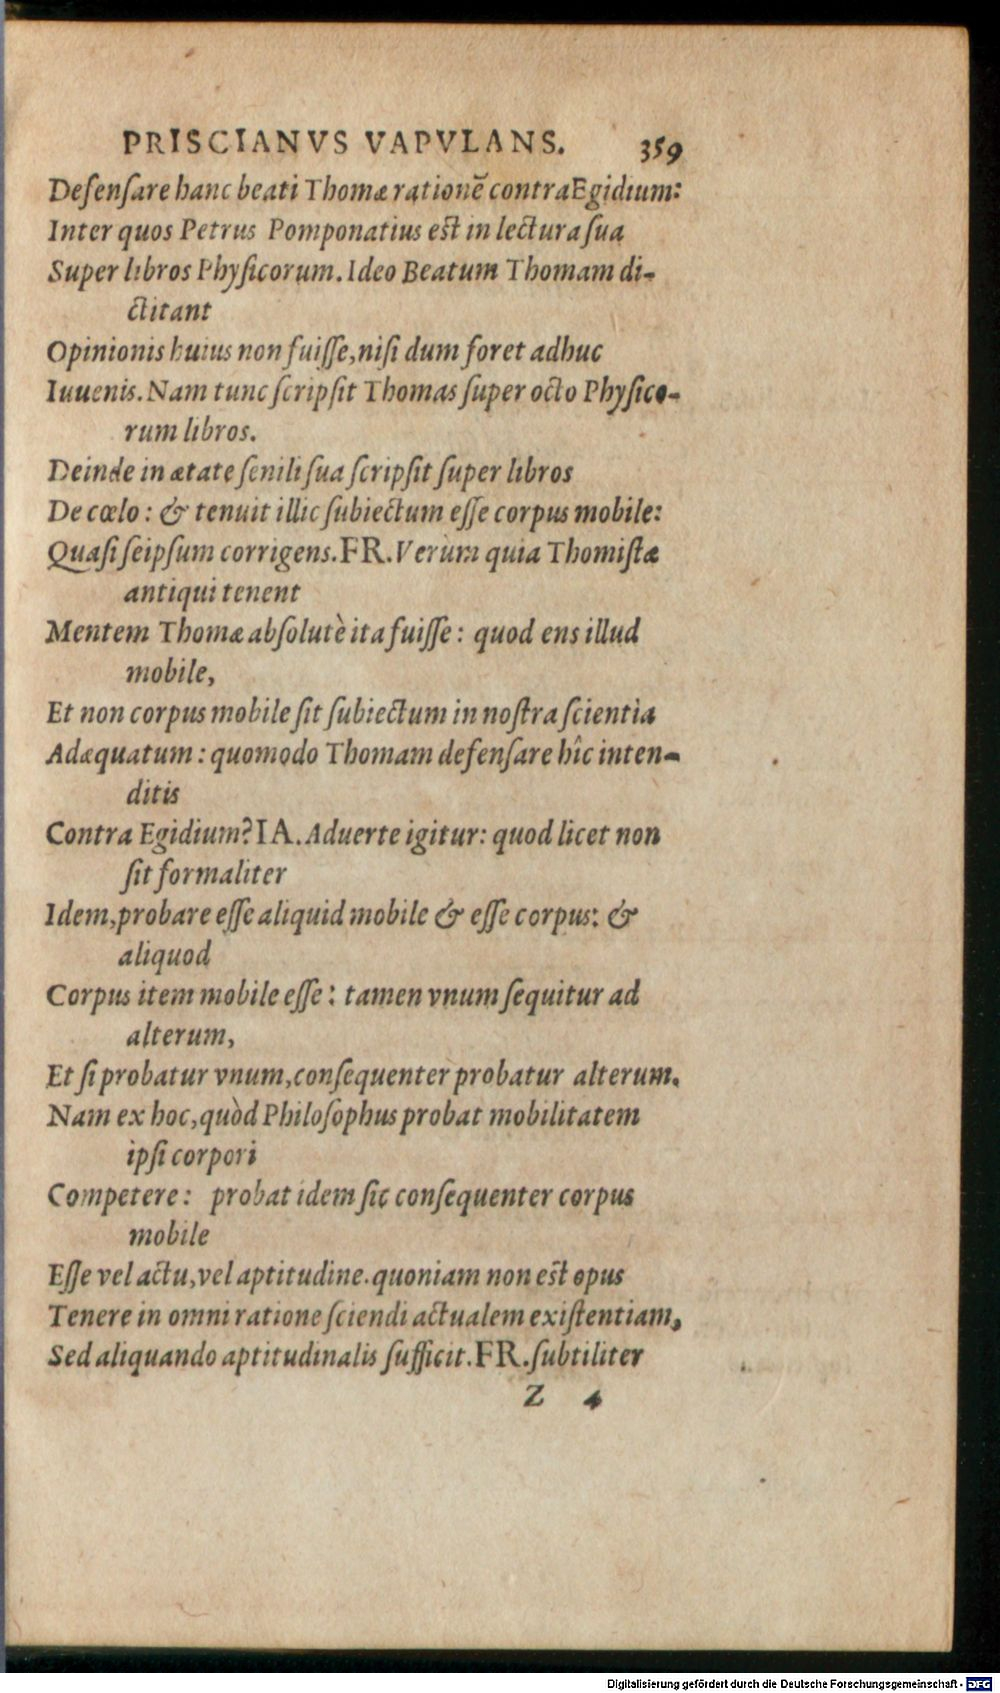 PRISCIANVS VAPVLANS. 359
Defenſare hanc beati Thomæ rationē contra Egidium:
Inter quos Petrus Pomponatius eſt in lectura ſua
Super libros Phyſicorum. Ideo Beatum Thomam di-
ctitant
Opinionis huius non fuiſſe, niſi dum foret adhuc
Iuuenis. Nam tunc ſcripſit Thomas ſuper octo Phyſico-
rum libros.
Deinde in ætate ſenili ſua ſcripſit ſuper libros
De cœlo: & tenuit illic ſubiectum eſſe corpus mobile:
Quaſi ſeipſum corrigens. FR. Verùm quia Thomiſtæ
antiqui tenent
Mentem Thomæ abſolutè ita fuiſſe: quod ens illud
mobile,
Et non corpus mobile ſit ſubiectum in noſtra ſcientia
Adæquatum: quomodo Thomam defenſare hîc inten-
ditis
Contra Egidium? IA. Aduerte igitur: quod licet non
ſit formaliter
Idem, probare eſſe aliquid mobile & eſſe corpus: &
aliquod
Corpus item mobile eſſe: tamen vnum ſequitur ad
alterum,
Et ſi probatur vnum, conſequenter probatur alterum.
Nam ex hoc, quòd Philoſophus probat mobilitatem
ipſi corpori
Competere: probat idem ſic conſequenter corpus
mobile
Eſſe vel actu, vel aptitudine. quoniam non eſt opus
Tenere in omni ratione ſciendi actualem exiſtentiam,
Sed aliquando aptitudinalis ſufficit. FR. ſubtiliter
Z 4
Digitalisierung gefördert durch die Deutsche Forschungsgemeinschaft - DFG